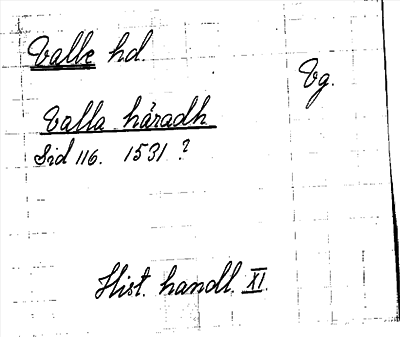 Valle hd.
Vg.
Valla häradh
Sid 116. 1531 ?
Hist. handl. XI.